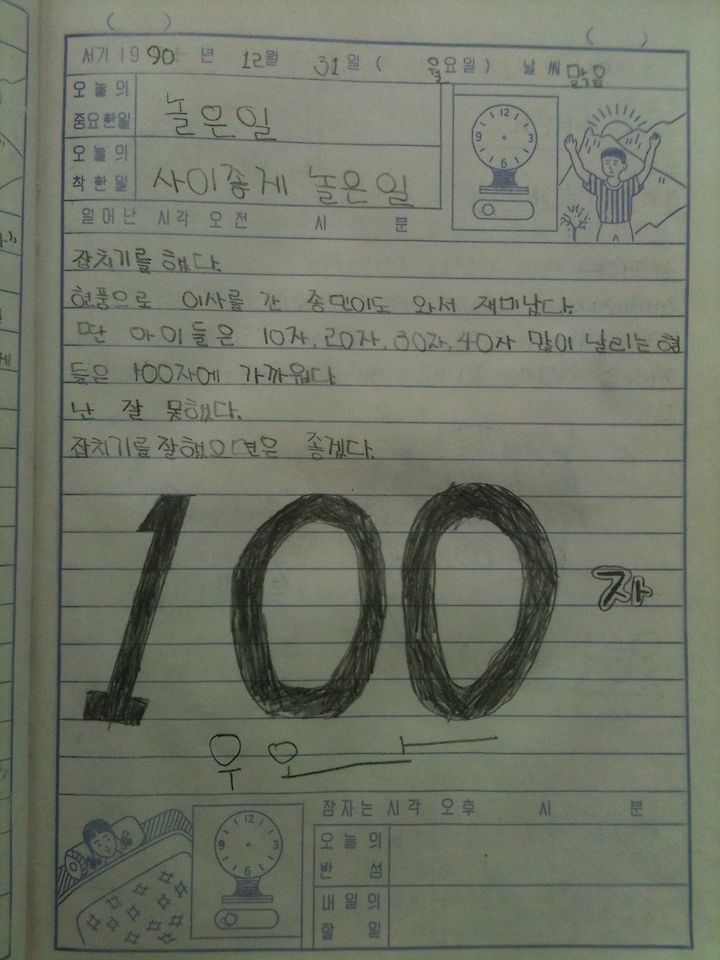 ( )
( )
서기 1990 년 12월 31일 ( 월요일 ) 날씨 맑음
오늘의 중요한일 놀은일
오늘의 착한일 사이좋게 놀은일
일어난 시각 오전 시 분
12
3
6
9
잠치기를 했다.
현풍으로 이사를 간 종민이도 와서 재미났다.
딴 아이들은 10자, 20자, 30자, 40자 많이 날리는 형
들은 100자에 가까웠다
난 잘 못했다.
잠치기를 잘했으면은 좋겠다.
100 자
우오
잠자는 시각 오후 시 분
12
3
6
9
오늘의 반성
내일의 할일